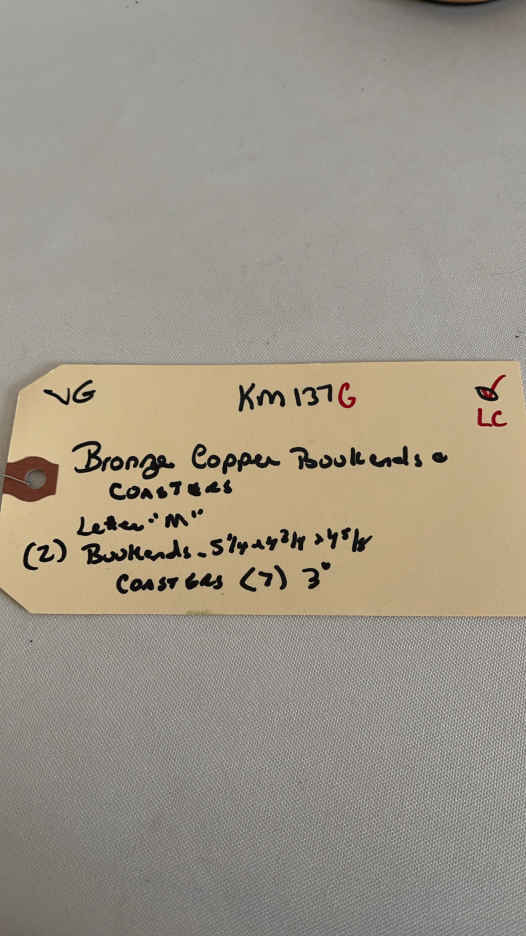 VG KM137G
LC
Bronze Copper Bookends &
COASTERS
Letter "M"
(2) Bookends - 5 1/4 x 4 3/4 x 4 5/8
COASTERS (7) 3"